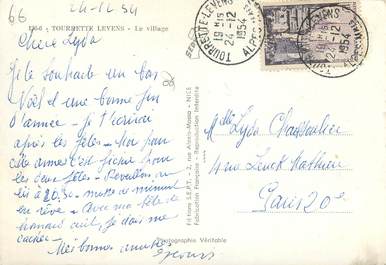 66
24-12-54
1566 - TOURRETTE LEVENS - Le village
Chère Lyda
Je te souhaite un bon
Noël et une bonne fin
d'année - je t'écrirai
après les fêtes - Moi pour
cette année c'est fichu pour
les deux fêtes - Réveillon au
lit à 20.30 - messe de minuit
en rêve - Avec ma tête de
je dois me
cacher -
Mes bonnes amitiés
TOURRETTE-LEVENS
19 H
24-12
1954
ALPES
TOURRETTE-LEVENS
19 H
24-12
1954
Mlle Lyda
4 rue
Paris 20e
Editions S.E.P.T. - 2, rue Alsace-Lorraine - NICE
Fabrication Française - Reproduction Interdite
Photographie Véritable